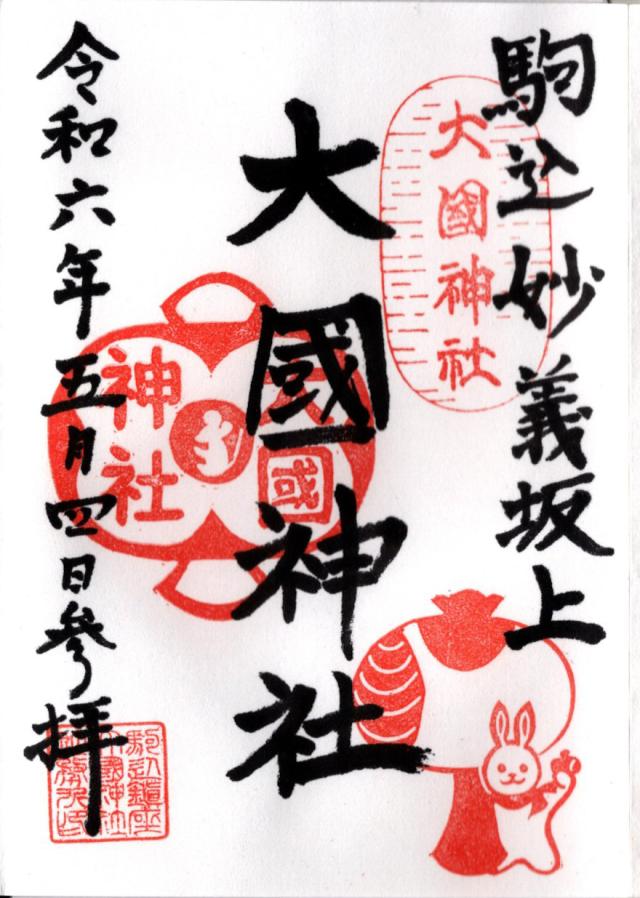 駒込妙義坂上
大國神社
大國神社
大國
神社
令和六年五月四日参拝